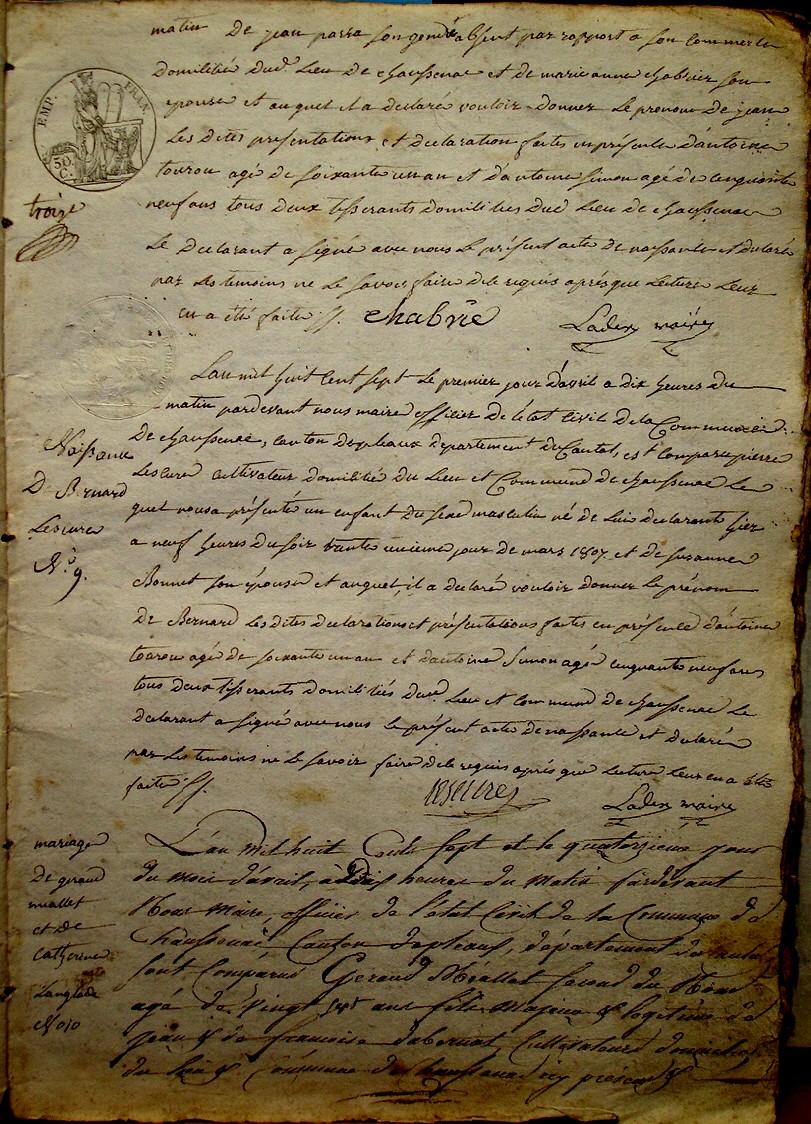 matin De jean parra son gendre absent par rapport a son commerce
domilitié dud. Lieu De chaussenac et de marie anne chabrier son
epouse et auquel il a declaré vouloir donner le prenom De jean
Les dites presentations et declaration faites en présence d'antoine
tourou agé de soixante un an et d'antoine simon agé de cinquante
neuf ans tous deux tisserants domilities dud Lieu de chaussenac
Le Declarant a signé avec nous le présent acte de naissance et declaré
par les temoins ne le savoir faire de le requis après que Lecture Leur
en a été faite
EMP. FRAN.
50. C.
troize
chabrie
Ladex maire
L'an mil huit cent sept le premier jour d'avril a dix heures du
matin pardevant nous maire officier de l'état civil de la Commune
De chaussenac, canton de pleaux departement du Cantal, est comparu pierre
Lescure cultivateur domilitié du Lieu et Commune de chaussenac Le
quel nous a présenté un enfant du sexe masculin né de lui declarant hier
a neuf heures du soir trente unieme jour de mars 1807 et de suzanne
Bonnet son épouse et auquel, il a declaré vouloir donner le prénom
De Bernard Les dites declarations et présentations faites en présence d'antoine
tourou agé de soixante un an et d'antoine Simon agé cinquante neuf ans
tous deux tisserants domilities dud. Lieu et commune de chaussenac Le
declarant a signé avec nous le présent acte de naissance et declaré
par les temoins ne le savoir faire de le requis après que Lecture leur en a été
faite
Naissance
D Bernard
Lescure
N.° 9.
lescure
Ladex maire
mariage
De geraud
miallet
et de
Catherine
Langlade
N° 10
L'an Mil huit Cent Sept et le quatorzieme jour
du mois d'avril, à dix heures du Matin Pardevant
Nous Maire, officier de l'état Civil de la Commune de
Chaussenac Canton de pleaux, département du Cantal
sont Comparus Geraud Miallet Second du Nom
agé de Vingt sept ans fils Majeur & legitime de
jean & de francoise Cultivateurs domiciliés
du lieu & Commune de Chaussenac